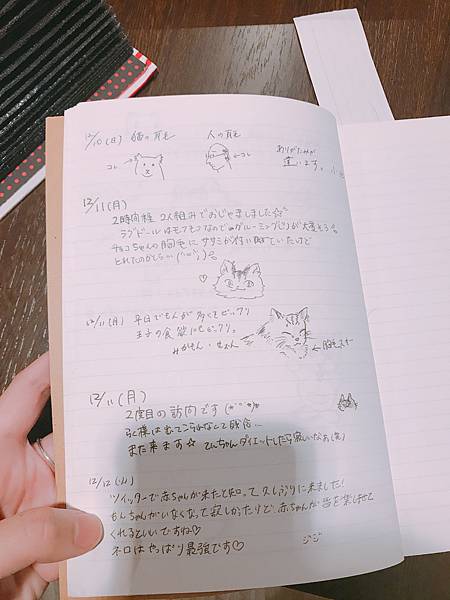 12/10(日) 猫の耳毛 人の耳毛
コレ→ ←コレ
ありがたみが
違います。
12/11(月)
2時間程 2人組みでおじゃましました☆
ラグドールはモフモフなのでグルーミングが大変そう。
チョコちゃんの胸毛にササミが付いていたけど
とれたのかしら…
12/11(月) 平日でも人が多くてビックリ
王子の食欲にもビックリ。
12/11(月)
2度目の訪問です
また来ます☆ てんちゃんダイエットしたら寂しいなぁ(笑)
12/12(火)
ツイッターで赤ちゃんが来たと知って、久しぶりに来ました!
もんちゃんがいなくなって寂しかったけど、赤ちゃんが皆を楽しませて
くれるといいですね♡
ネロはやっぱり最強です♡
ジジ